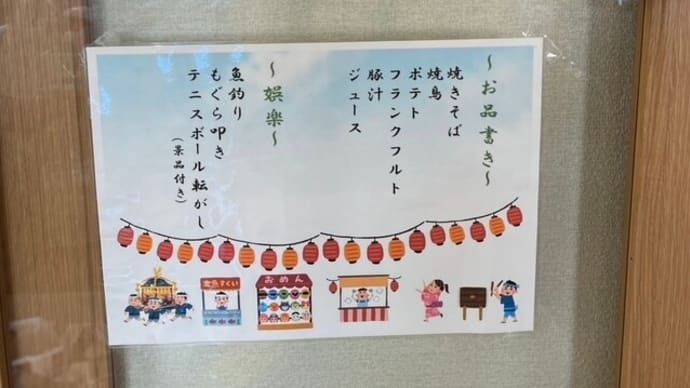 ～お品書き～
焼きそば
焼鳥
ポテト
フランクフルト
豚汁
ジュース
～娯楽～
魚釣り
もぐら叩き
テニスボール転がし
（景品付き）
金魚すくい
おめん